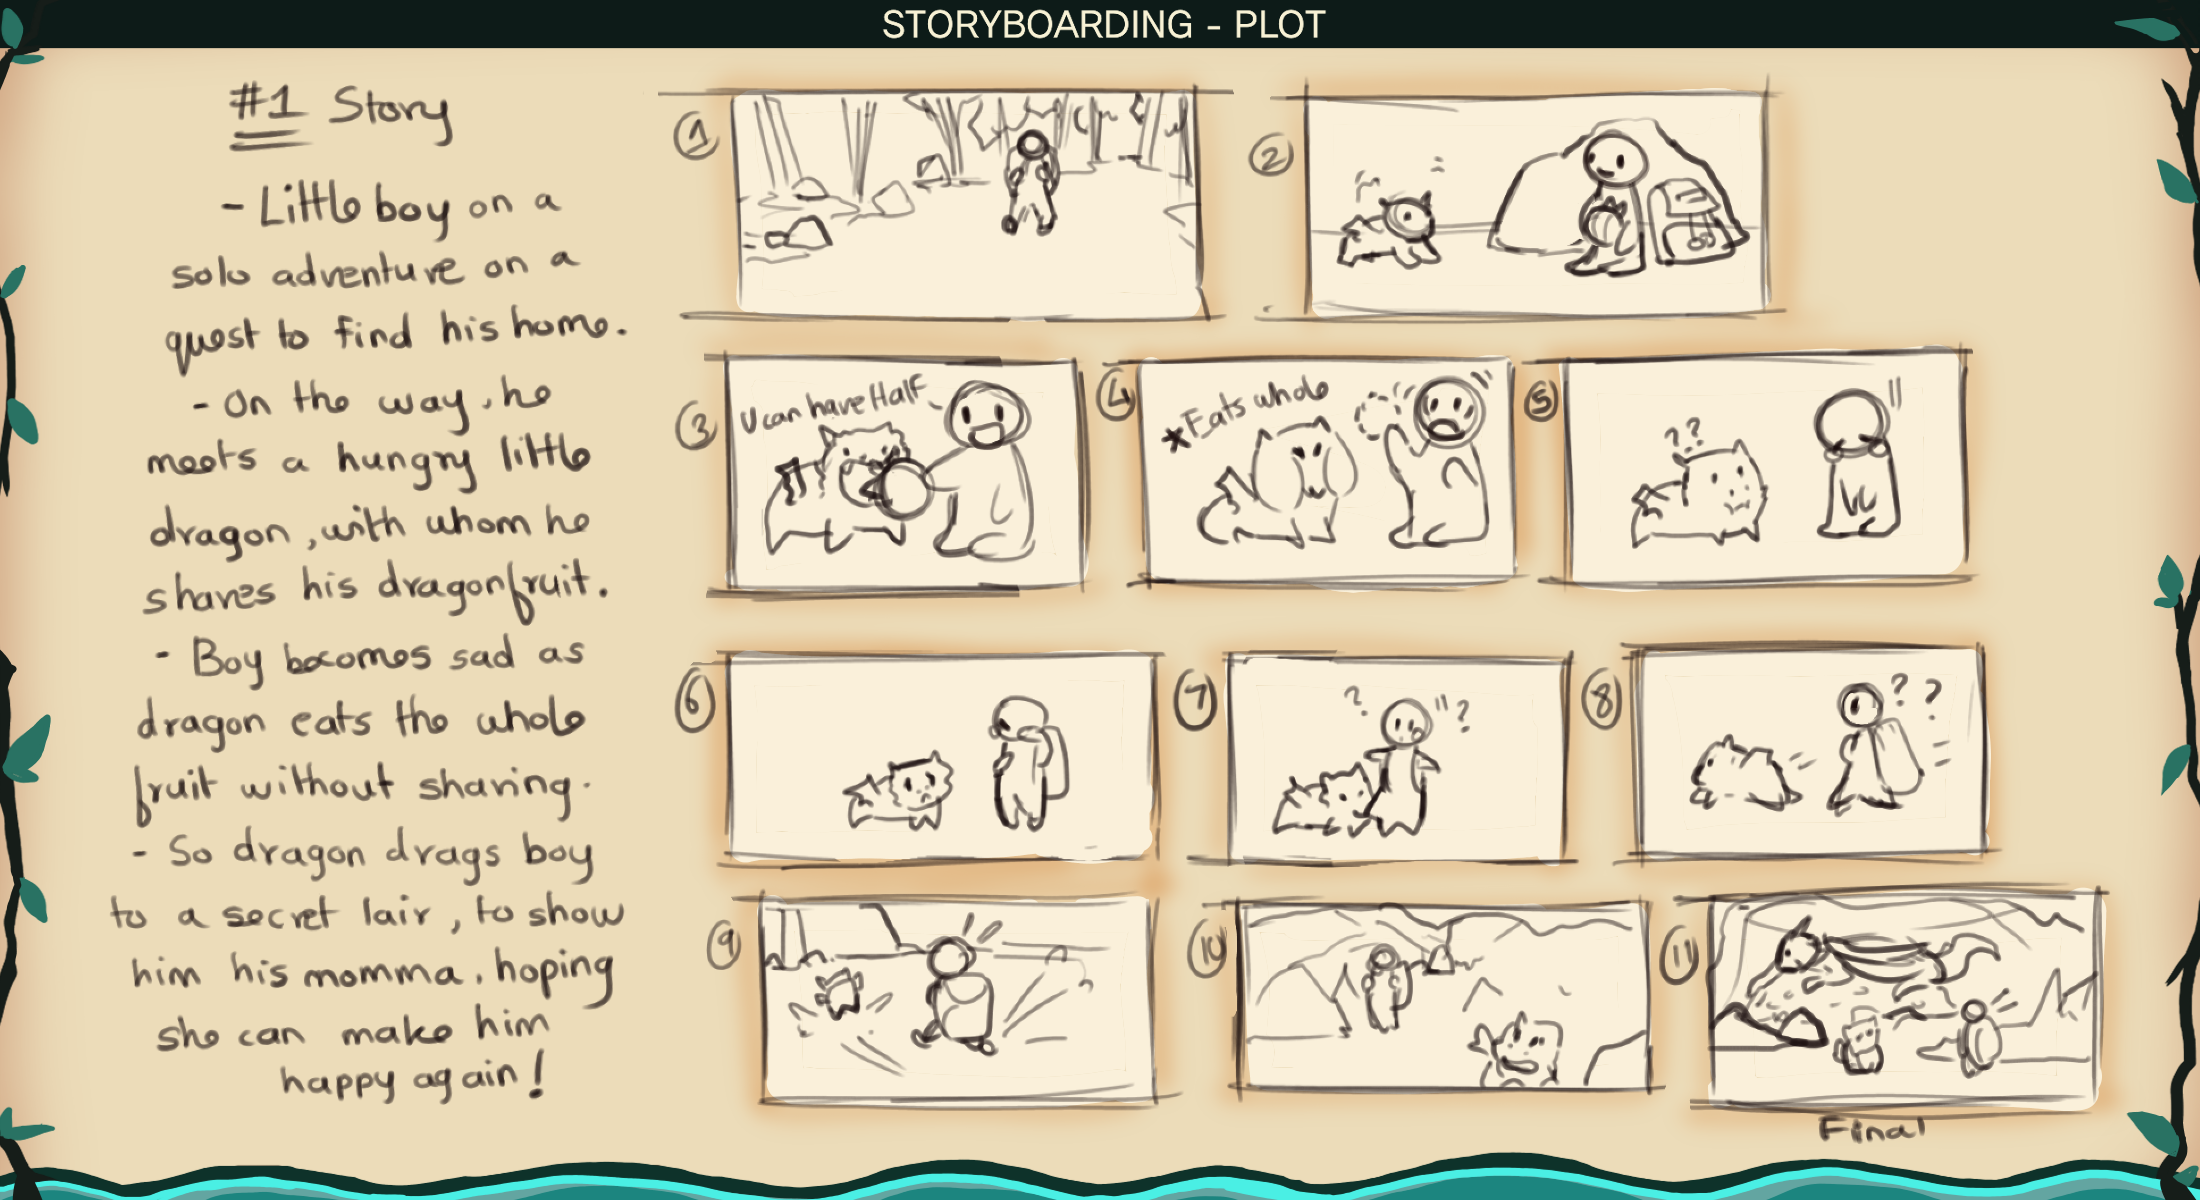 STORYBOARDING - PLOT
#1 Story
- Little boy on a
solo adventure on a
quest to find his home.
- On the way, he
meets a hungry little
dragon, with whom he
shares his dragonfruit.
- Boy becomes sad as
dragon eats the whole
fruit without sharing.
- So dragon drags boy
to a secret lair, to show
him his momma, hoping
she can make him
happy again!
1
2
3
U can have Half
4
*Eats whole
5
??
6
7
? "?
8
? ?
9
10
11
Final